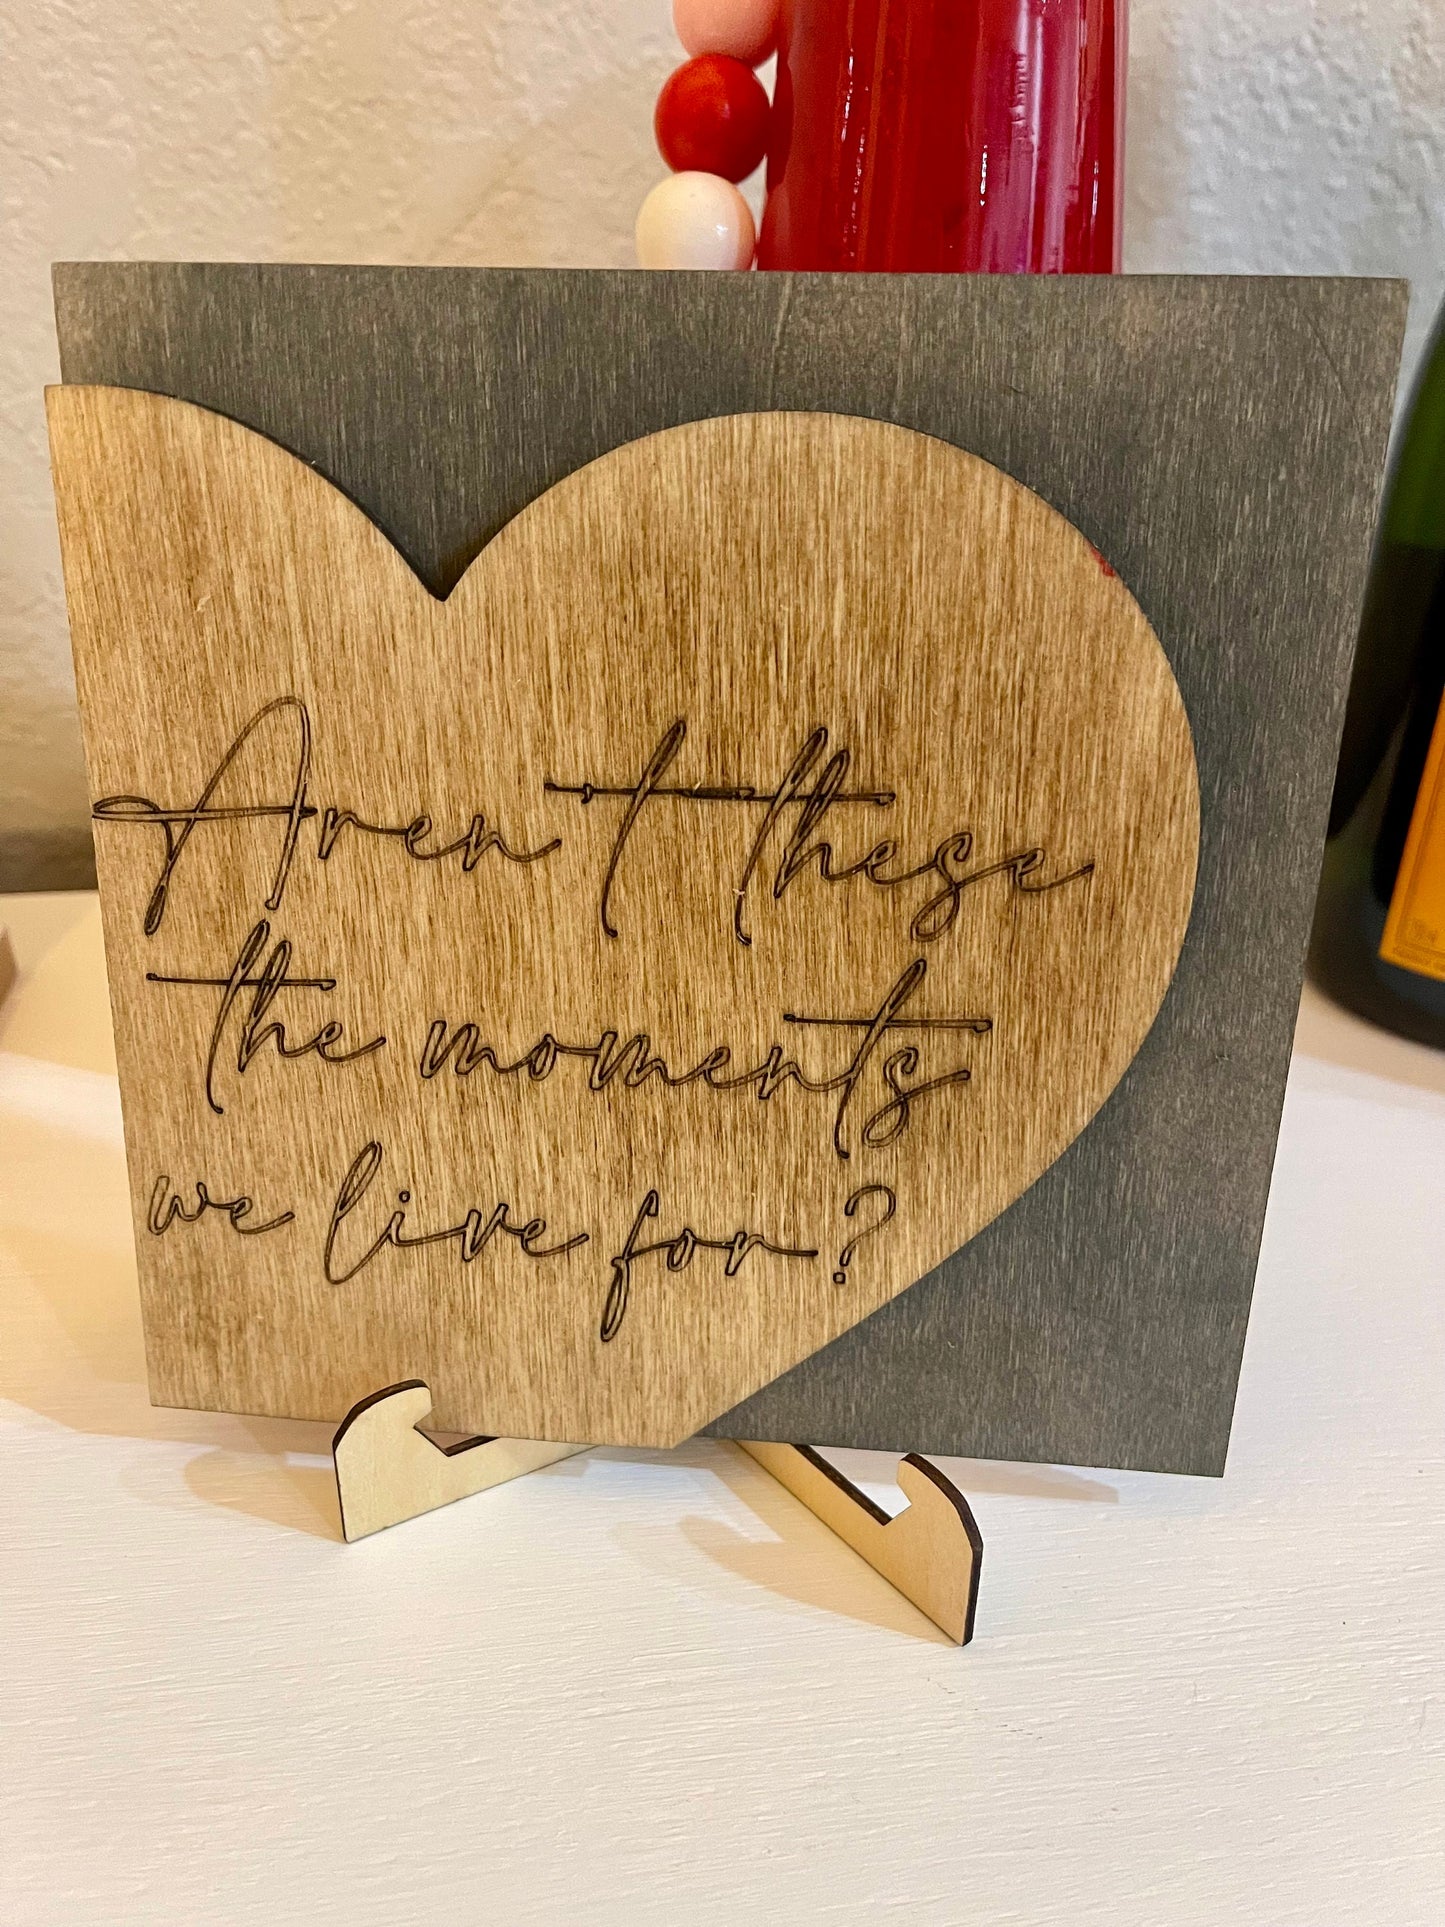 Aren't these
the moments
we live for?